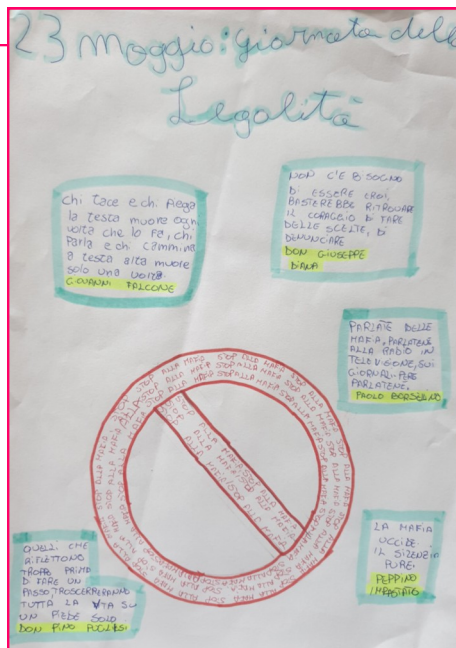 23 Maggio: Giornata della
Legalità
Chi tace e chi piega
la testa muore ogni
volta che lo fa, chi
parla e chi cammina
a testa alta muore
solo una volta.
GIOVANNI FALCONE
NON C'È BISOGNO
DI ESSERE EROI,
BASTEREBBE RITROVARE
IL CORAGGIO DI FARE
DELLE SCELTE, DI
DENUNCIARE
DON GIUSEPPE
DIANA
PARLATE DELLE
MAFIA, PARLATENE
ALLA RADIO IN
TELEVISIONE, SUI
GIORNALI. PERÒ
PARLATENE.
PAOLO BORSELLINO
STOP ALLA MAFIA STOP ALLA MAFIA STOP ALLA MAFIA
LA MAFIA
UCCIDE
IL SILENZIO
PURE.
PEPPINO
IMPASTATO
QUELLI CHE
RIFLETTONO
TROPPO PRIMA
DI FARE UN
PASSO, TRASCORRERANNO
TUTTA LA VITA SU
UN PIEDE SOLO
DON PINO PUGLISI